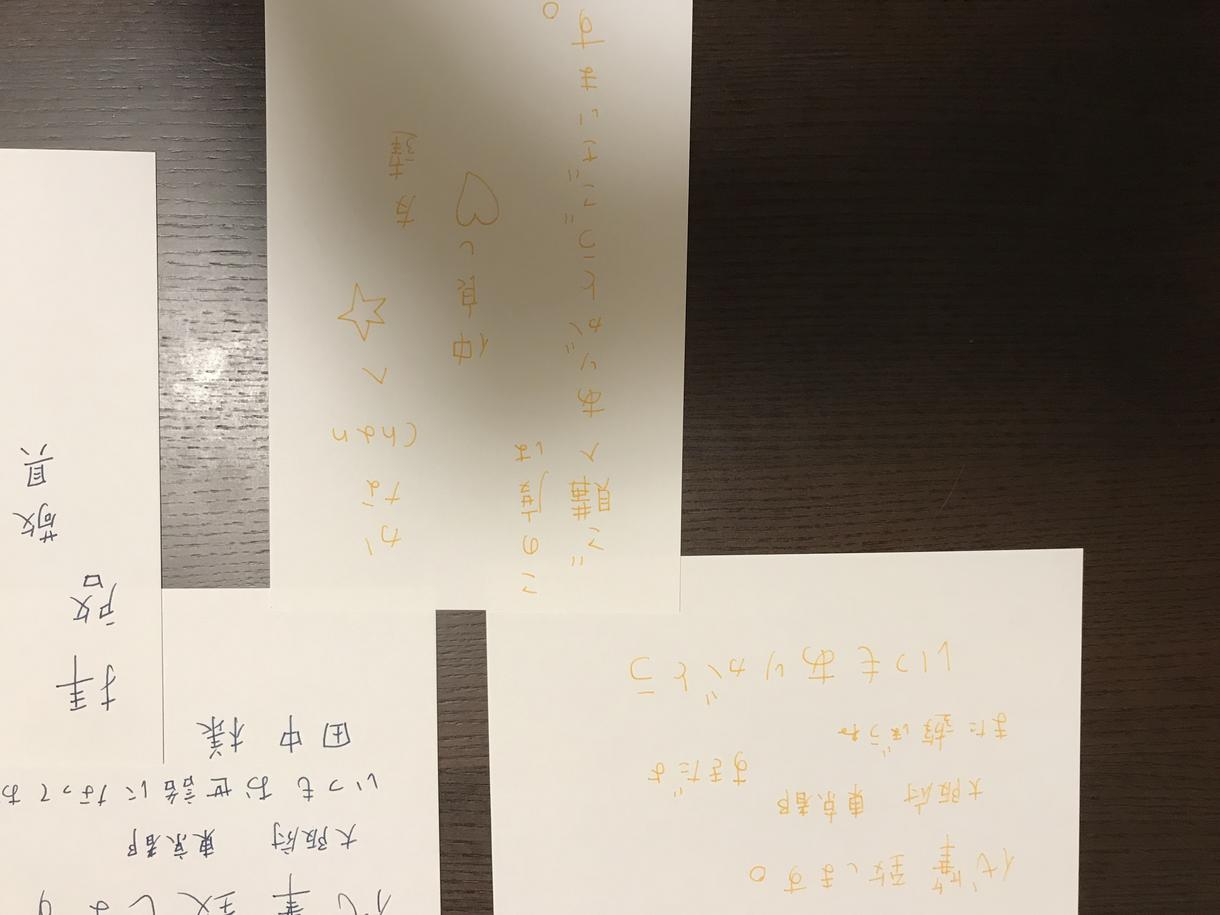 代筆致します。
大阪府 東京都
すきだよ
また遊ぼうね
いつもありがとう
代筆致します
大阪府 東京都
いつもお世話になってお
田中 様
拝啓
敬具
かなChanへ☆
友達
仲良し♡
この度は
ご購入ありがとうございます。